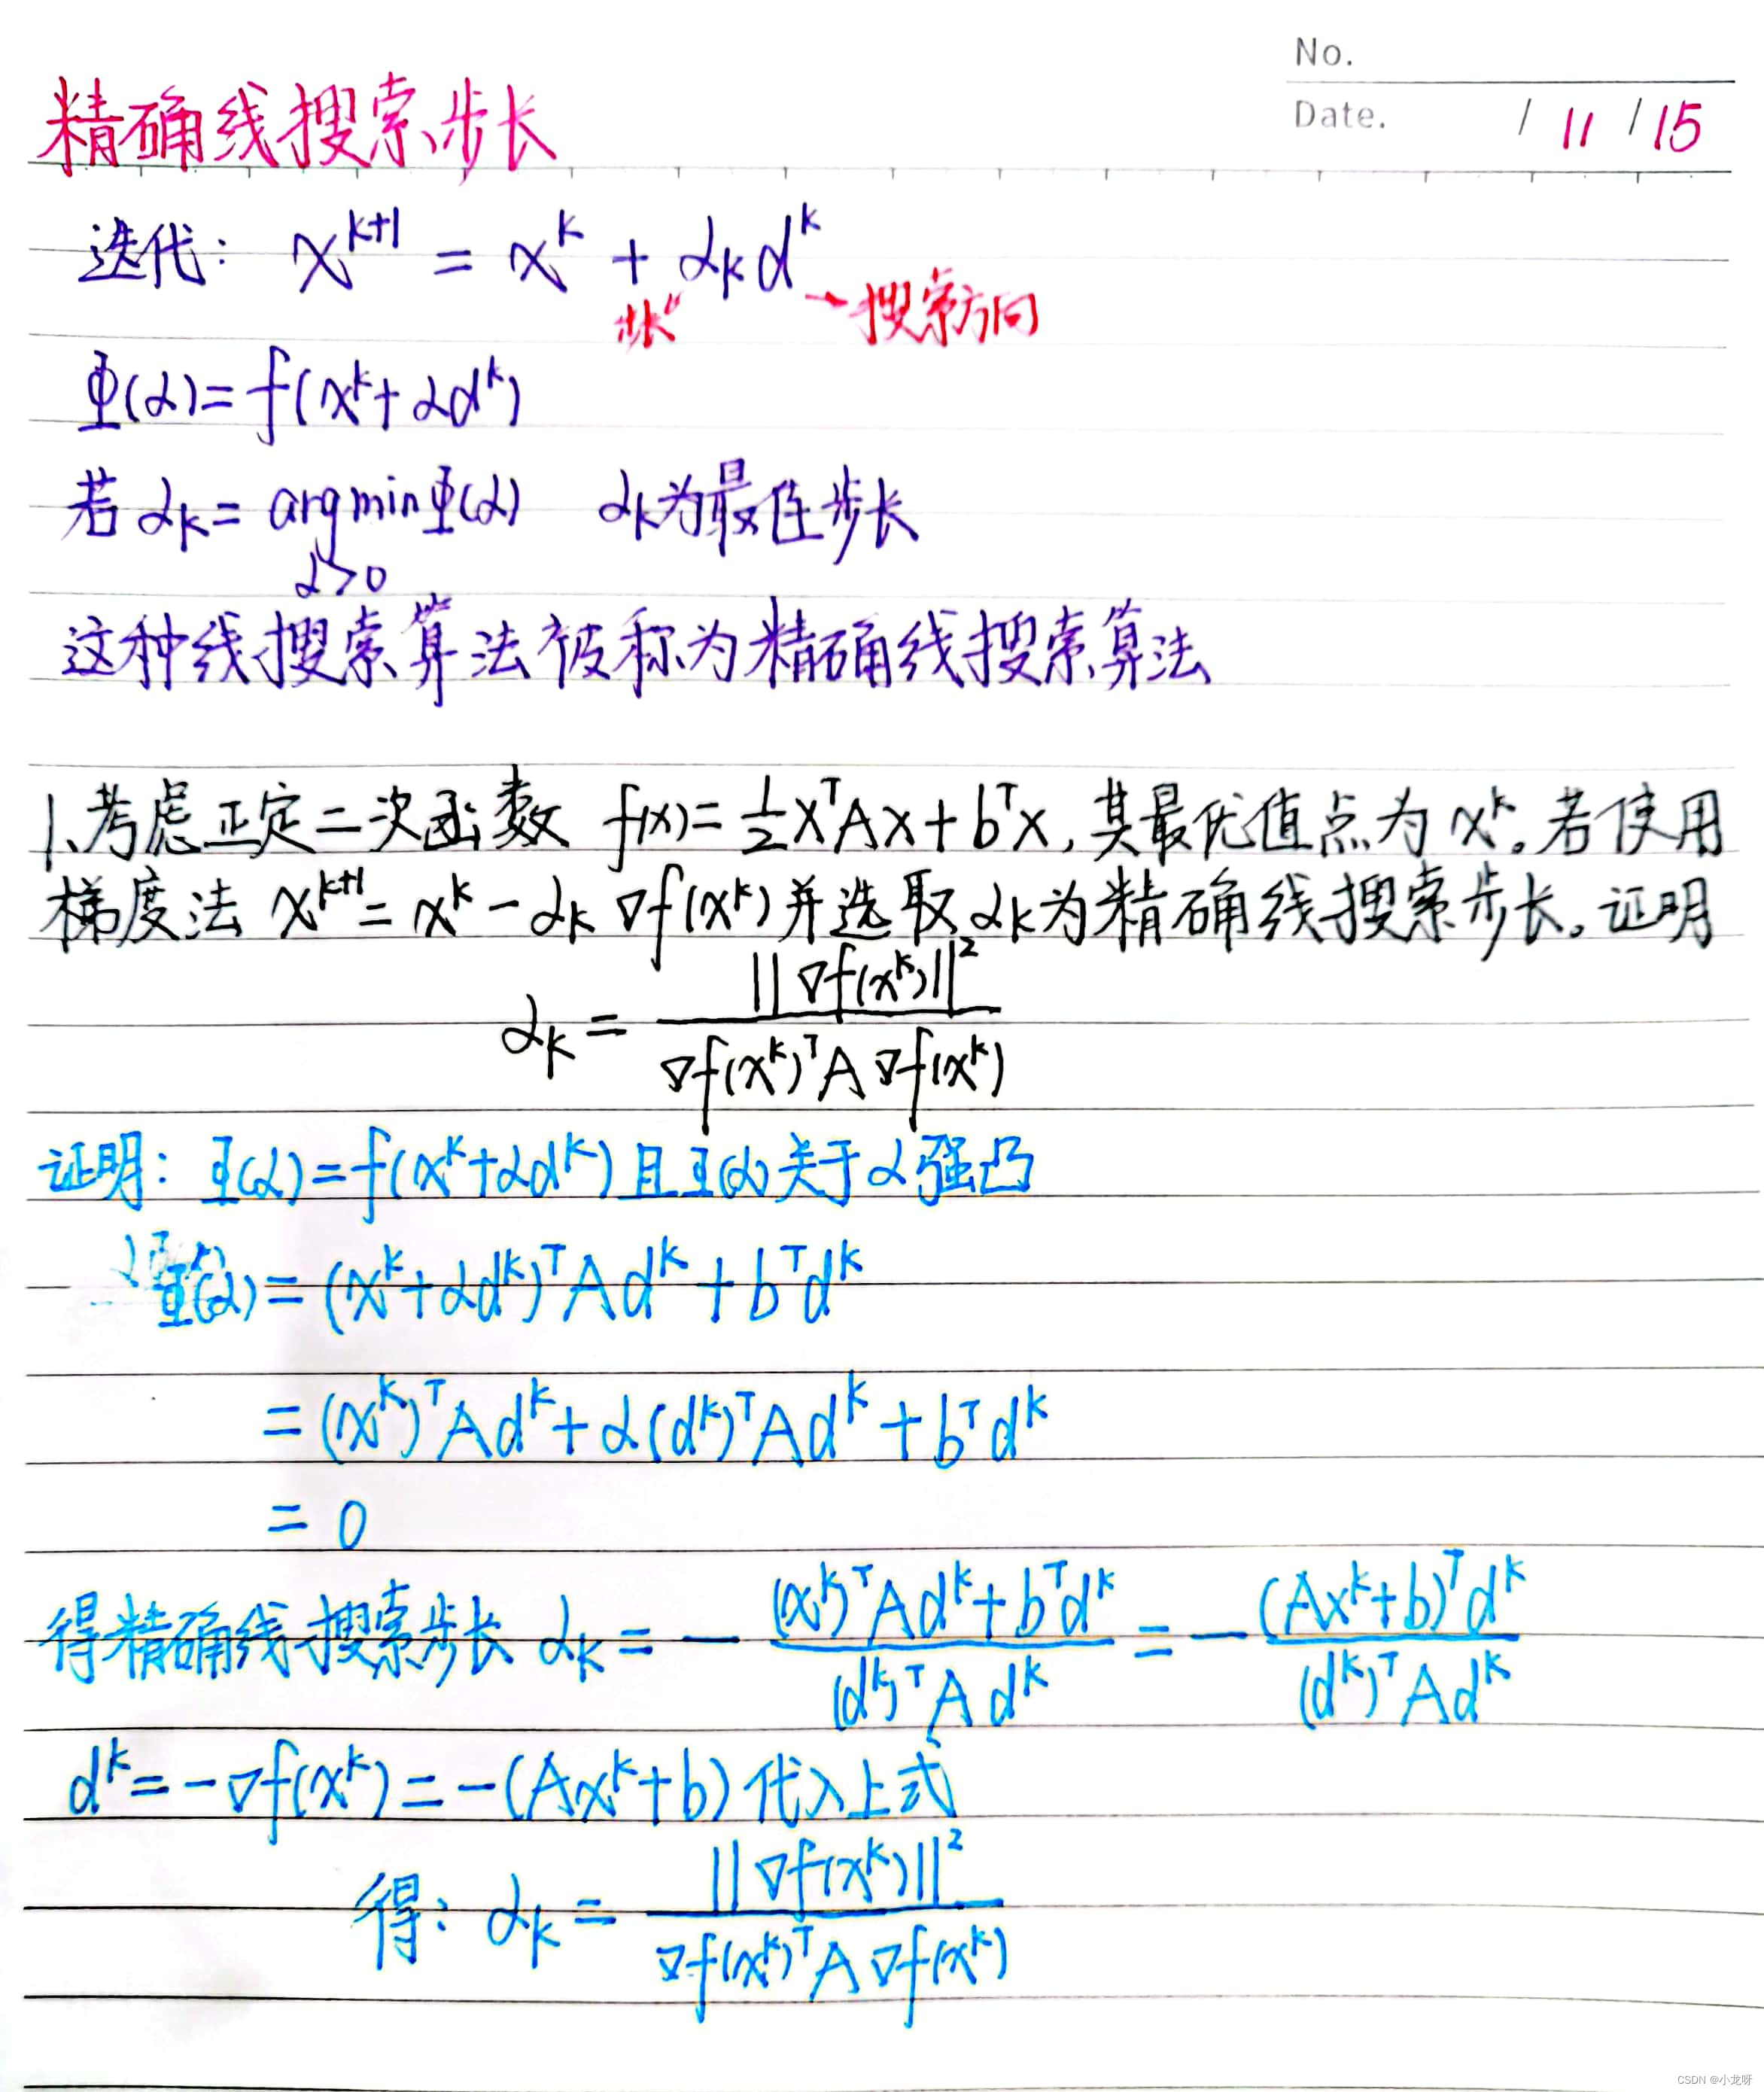 No.
Date. / 11 / 15
精确线搜索步长
迭代: x^{k+1} = x^k + α_k d^k
步长 → 搜索方向
Φ(α) = f(x^k + αd^k)
若 α_k = argmin Φ(α) α_k为最佳步长
α>0
这种线搜索算法被称为精确线搜索算法
1.考虑正定二次函数 f(x) = \frac{1}{2}x^TAx + b^Tx, 其最优值点为 x^k。若使用
梯度法 x^{k+1} = x^k - α_k ∇f(x^k) 并选取 α_k 为精确线搜索步长。证明
α_k = \frac{||∇f(x^k)||^2}{∇f(x^k)^T A ∇f(x^k)}
证明: Φ(α) = f(x^k + αd^k) 且 Φ(α) 关于 α 强凸
Φ'(α) = (x^k + αd^k)^T A d^k + b^T d^k
= (x^k)^T A d^k + α(d^k)^T A d^k + b^T d^k
= 0
得精确线搜索步长 α_k = - \frac{(x^k)^T A d^k + b^T d^k}{(d^k)^T A d^k} = - \frac{(Ax^k + b)^T d^k}{(d^k)^T A d^k}
d^k = -∇f(x^k) = -(Ax^k + b) 代入上式
得: α_k = \frac{||∇f(x^k)||^2}{∇f(x^k)^T A ∇f(x^k)}
CSDN @小龙呀